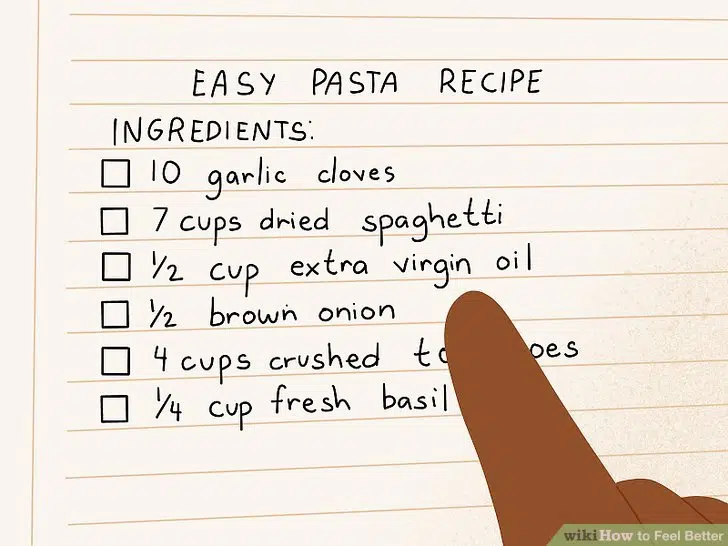 EASY PASTA RECIPE
INGREDIENTS:
10 garlic cloves
7 cups dried spaghetti
1/2 cup extra virgin oil
1/2 brown onion
4 cups crushed
1/4 cup fresh basil
wikiHow to Feel Better